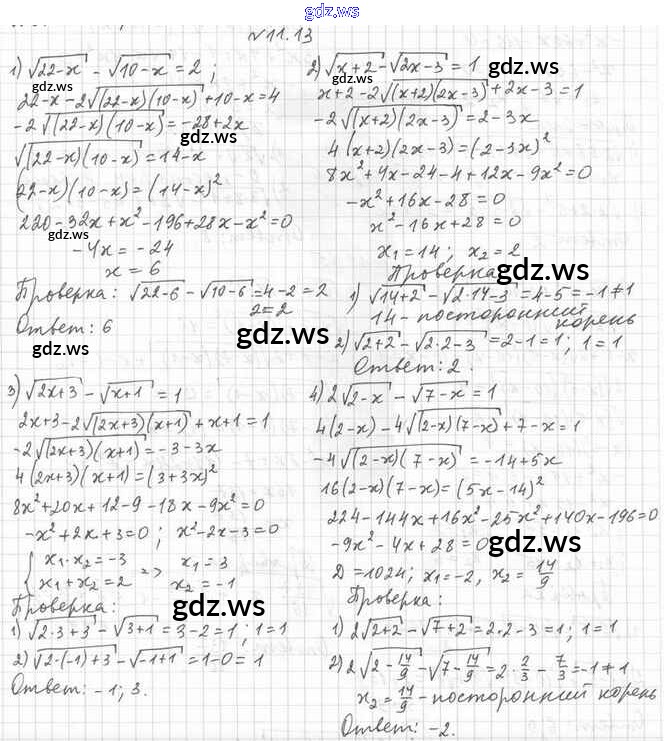 gdz.ws
№11.13
1) √(22-x) - √(10-x) = 2;
gdz.ws
22-x-2√((22-x)(10-x)) + 10-x = 4
-2√((22-x)(10-x)) = -28+2x
gdz.ws
√((22-x)(10-x)) = 14-x
(22-x)(10-x) = (14-x)²
220-32x+x²-196+28x-x²=0
gdz.ws
-4x = -24
x = 6
Проверка: √(22-6) - √(10-6) = 4-2 = 2
2=2
Ответ: 6
gdz.ws
gdz.ws
2) √(x+2) - √(2x-3) = 1
gdz.ws
gdz.ws
x+2-2√((x+2)(2x-3)) + 2x-3 = 1
-2√((x+2)(2x-3)) = 2-3x
4(x+2)(2x-3) = (2-3x)²
8x²+4x-24-4+12x-9x²=0
-x²+16x-28=0
x²-16x+28=0
x₁=14; x₂=2
Проверка
gdz.ws
1) √(14+2) - √(2·14-3) = 4-5 = -1≠1
14 - посторонний
корень
2) √(2+2) - √(2·2-3) = 2-1 = 1; 1=1
Ответ: 2.
3) √(2x+3) - √(x+1) = 1
2x+3-2√((2x+3)(x+1)) + x+1 = 1
-2√((2x+3)(x+1)) = -3-3x
4(2x+3)(x+1) = (3+3x)²
8x²+20x+12-9-18x-9x²=0
-x²+2x+3=0; x²-2x-3=0
{ x₁·x₂=-3 => x₁=3
x₁+x₂=2 x₂=-1
Проверка:
gdz.ws
1) √(2·3+3) - √(3+1) = 3-2 = 1; 1=1
2) √(2·(-1)+3) - √(-1+1) = 1-0 = 1
Ответ: -1; 3.
4) 2√(2-x) - √(7-x) = 1
4(2-x) - 4√((2-x)(7-x)) + 7-x = 1
-4√((2-x)(7-x)) = -14+5x
16(2-x)(7-x) = (5x-14)²
224-144x+16x²-25x²+140x-196=0
-9x²-4x+28=0
gdz.ws
D=1024; x₁=-2, x₂=14/9
Проверка:
1) 2√(2+2) - √(7+2) = 2·2-3 = 1; 1=1
2) 2√(2-14/9) - √(7-14/9) = 2·2/3 - 7/3 = -1≠1
x₂=14/9 - посторонний корень
Ответ: -2.